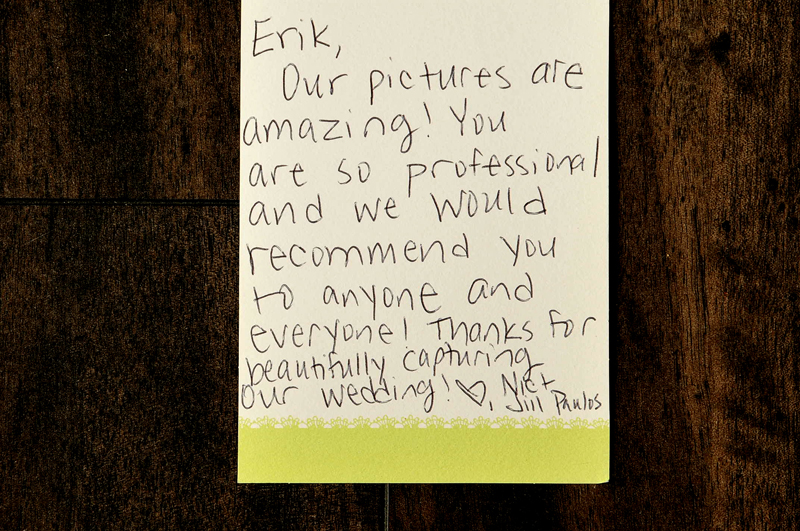 Erik,
Our pictures are
amazing! You
are so professional
and we would
recommend you
to anyone and
everyone! Thanks for
beautifully capturing
our wedding! ♡, Nic +
Jill Paulos